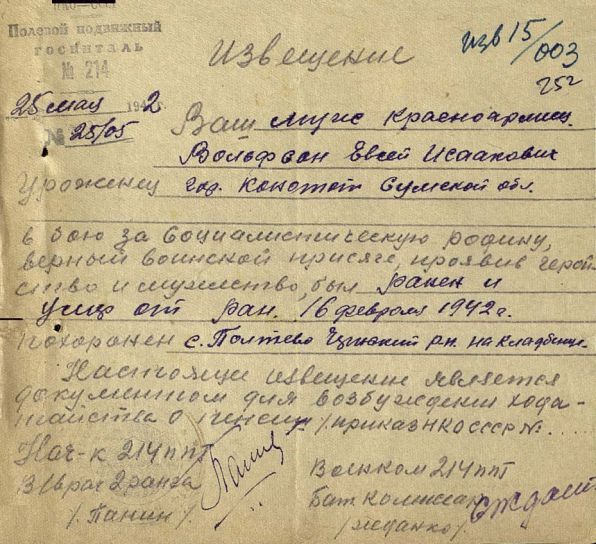 НКО-СССР
Полевой подвижный
госпиталь
№ 214
25 мая 1942 г.
№ 25/05
изв 15/003
252
Извещение
Ваш муж красноармеец
Вольфсон Евсей Исаакович
Уроженец гор. Конотоп Сумской обл.
в бою за Социалистическую родину,
верный воинской присяге, проявив герой
ство и мужество, был ранен и
умер от ран. 16 февраля 1942 г.
похоронен с. Полтево рн. на кладбище
Настоящее извещение является
документом для возбуждении хода-
тайства о пенсии /приказ НКО СССР №....
Нач-к 214 ппг
В/врач 2 ранга
/Панин/.
Военком 214 ппг
Бат. Комиссар
/жданко/